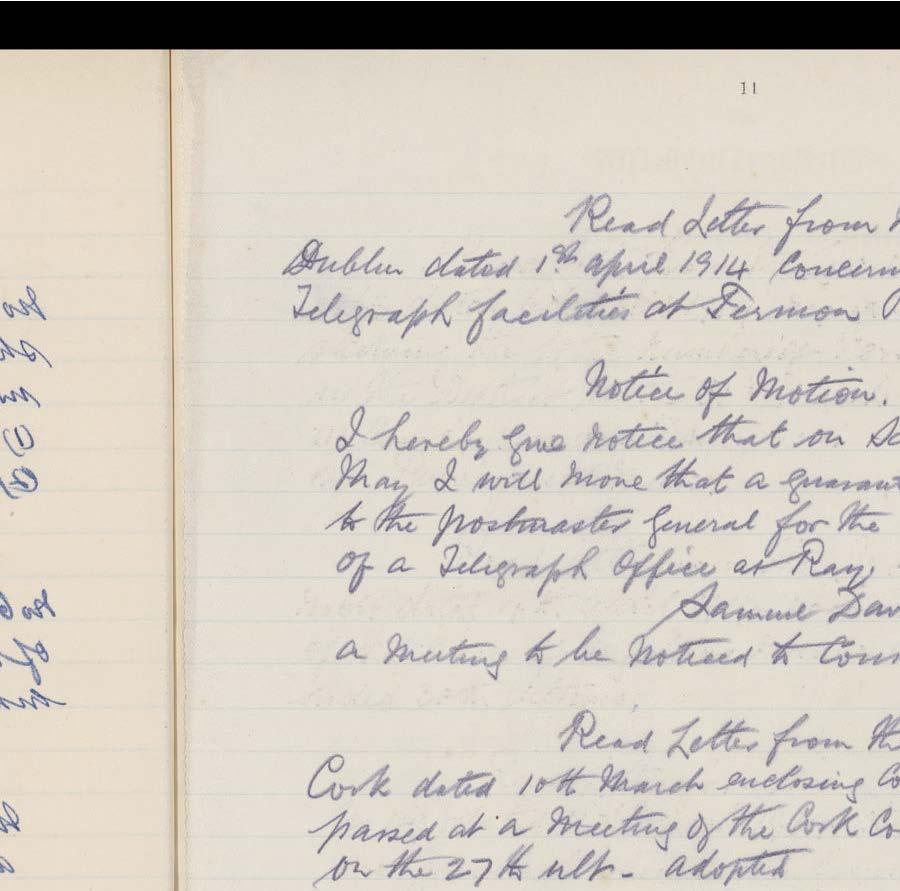 11
Read Letter from
Dublin dated 1st april 1914 Concern
Telegraph facilities at Termon
Notice of Motion.
I hereby give notice that on
May I will move that a guarant
to the postmaster General for the
of a Telegraph Office at Ray.
Samuel Dav
a Meeting to be Noticed to Cons
Read Letter from th
Cork dated 10th March enclosing Co
passed at a Meeting of the Cork Co
on the 27th ult - adopted